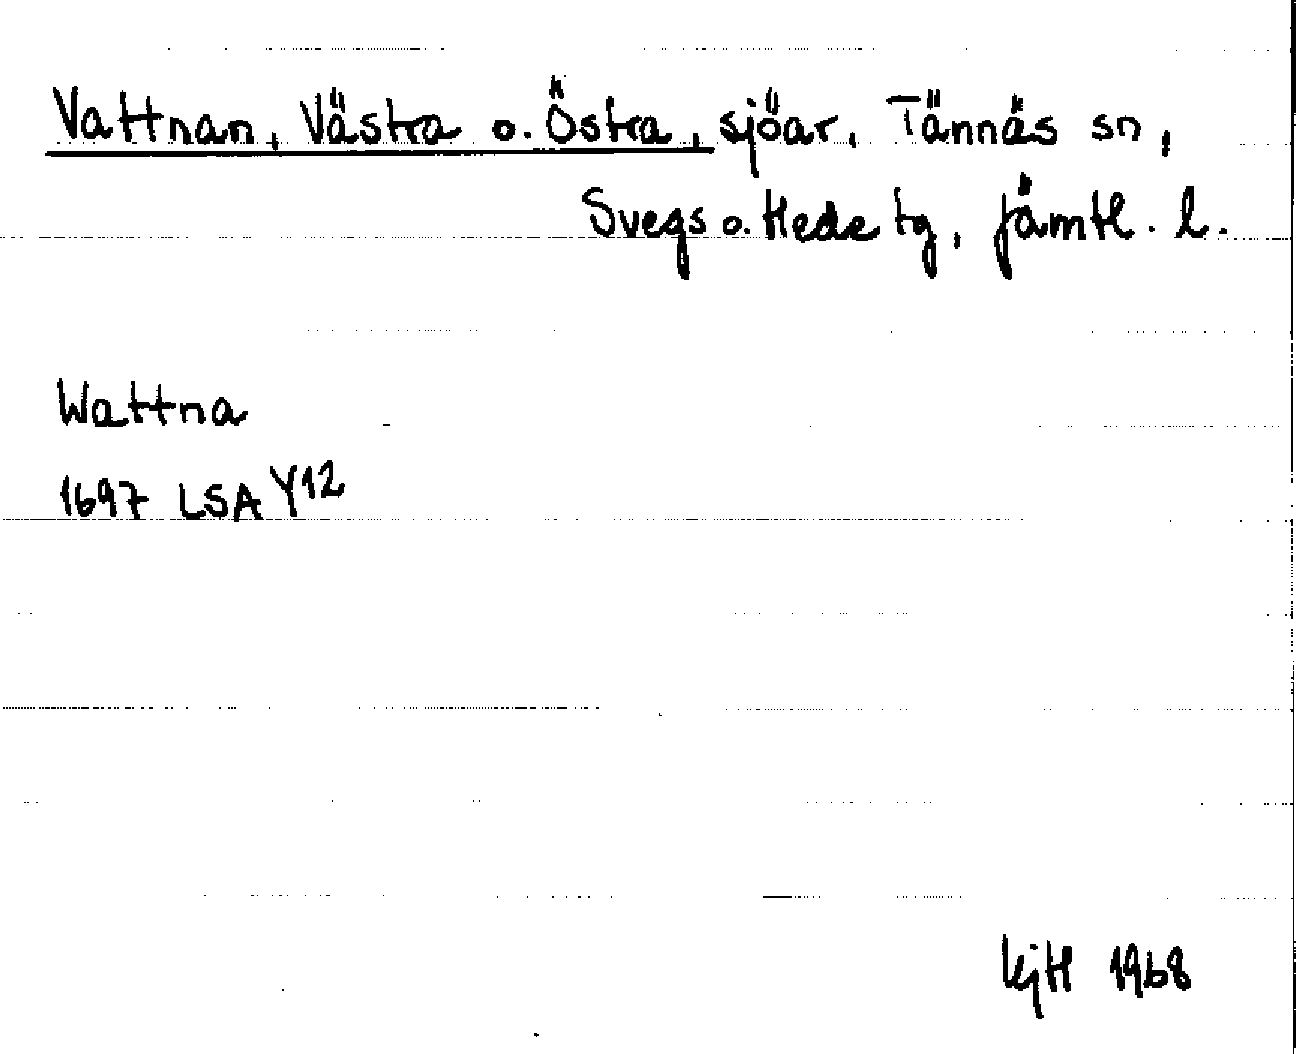 Vattnan, Västra o. Östra, sjöar, Tännäs sn,
Svegs o. Hede tg, Jämtl. l.
Wattna
1697 LSA Y12
KjH 1968